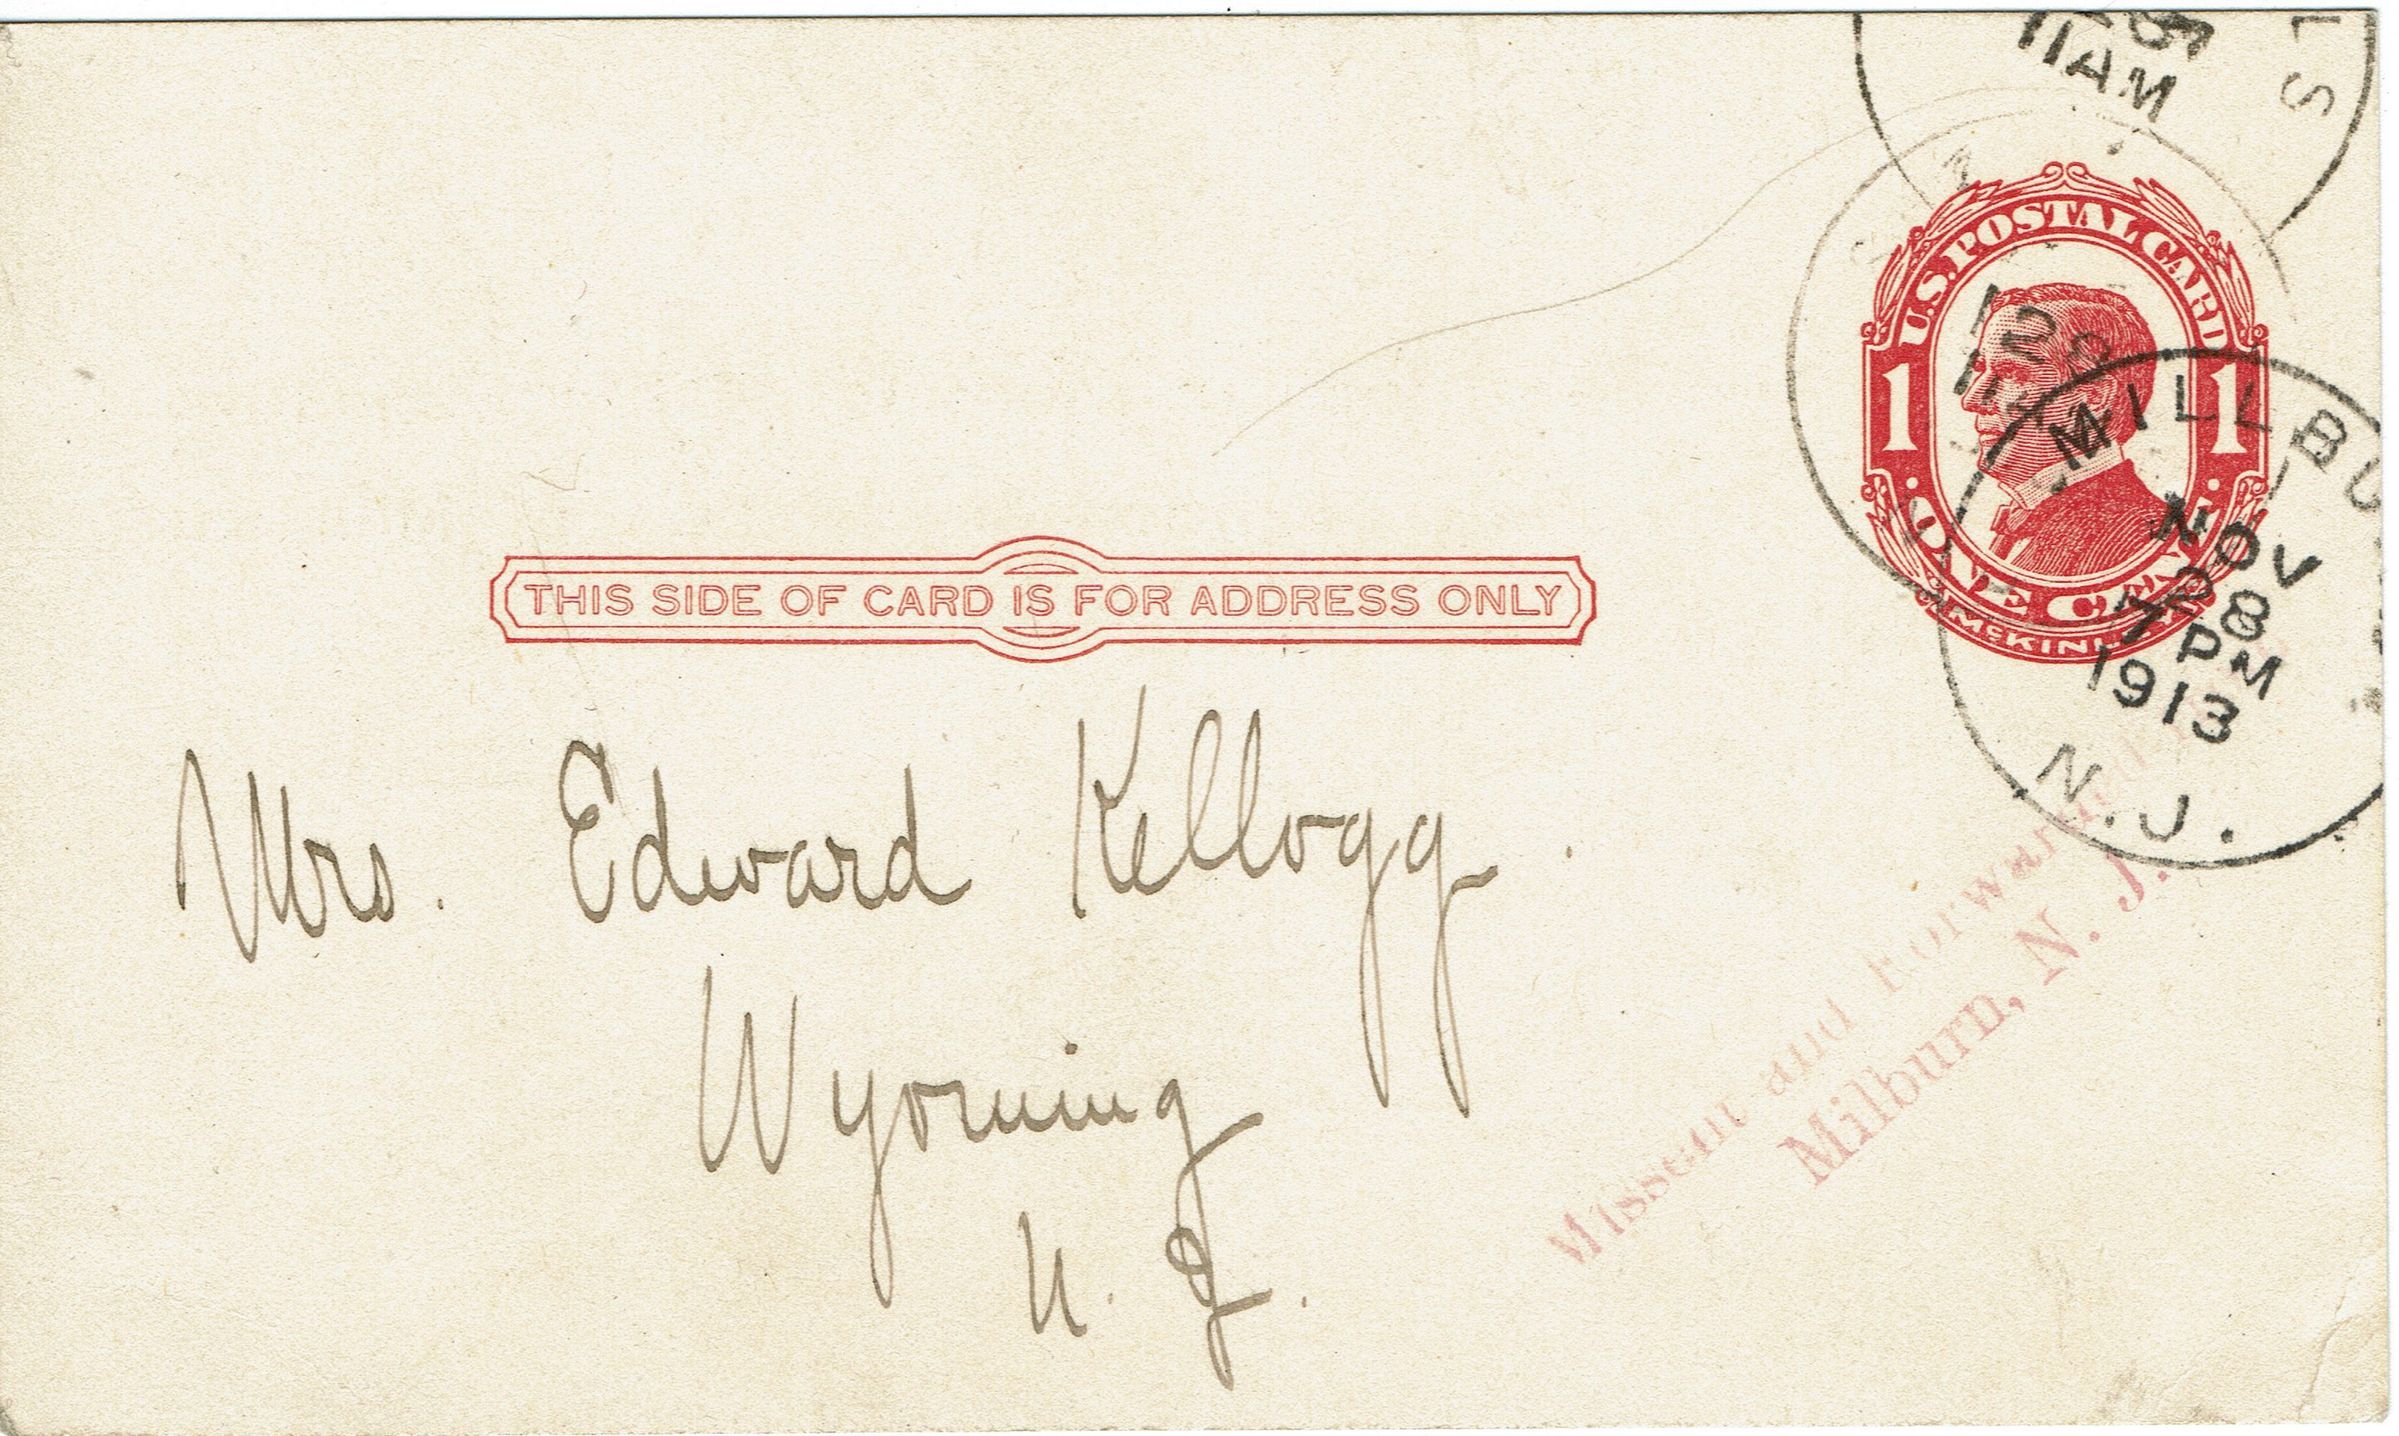 11AM
S
U.S. POSTAL CARD
1 1
· ONE CENT ·
McKINLEY
MILLBU
NOV
28
7 PM
1913
N.J.
THIS SIDE OF CARD IS FOR ADDRESS ONLY
Mrs. Edward Kellogg.
Wyoming
N. J.
Missent and Forwarded
Milburn, N. J.